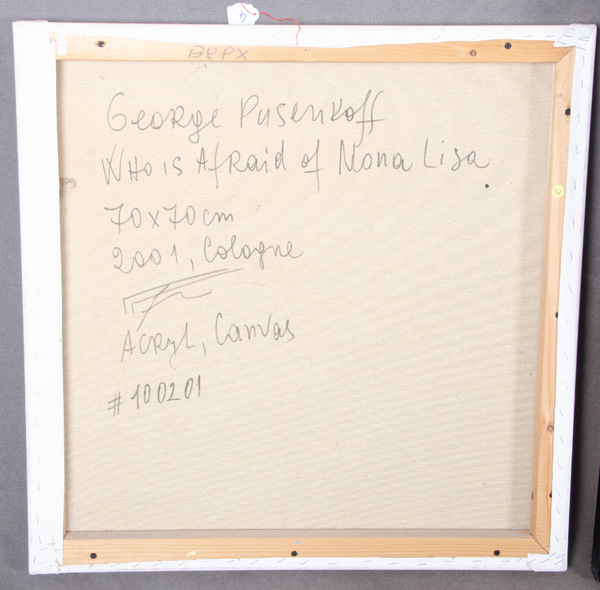 ВЕРХ
George Pusenkoff
Who is Afraid of Mona Lisa
70x70cm
2001, Cologne
Acryl, Canvas
#100201